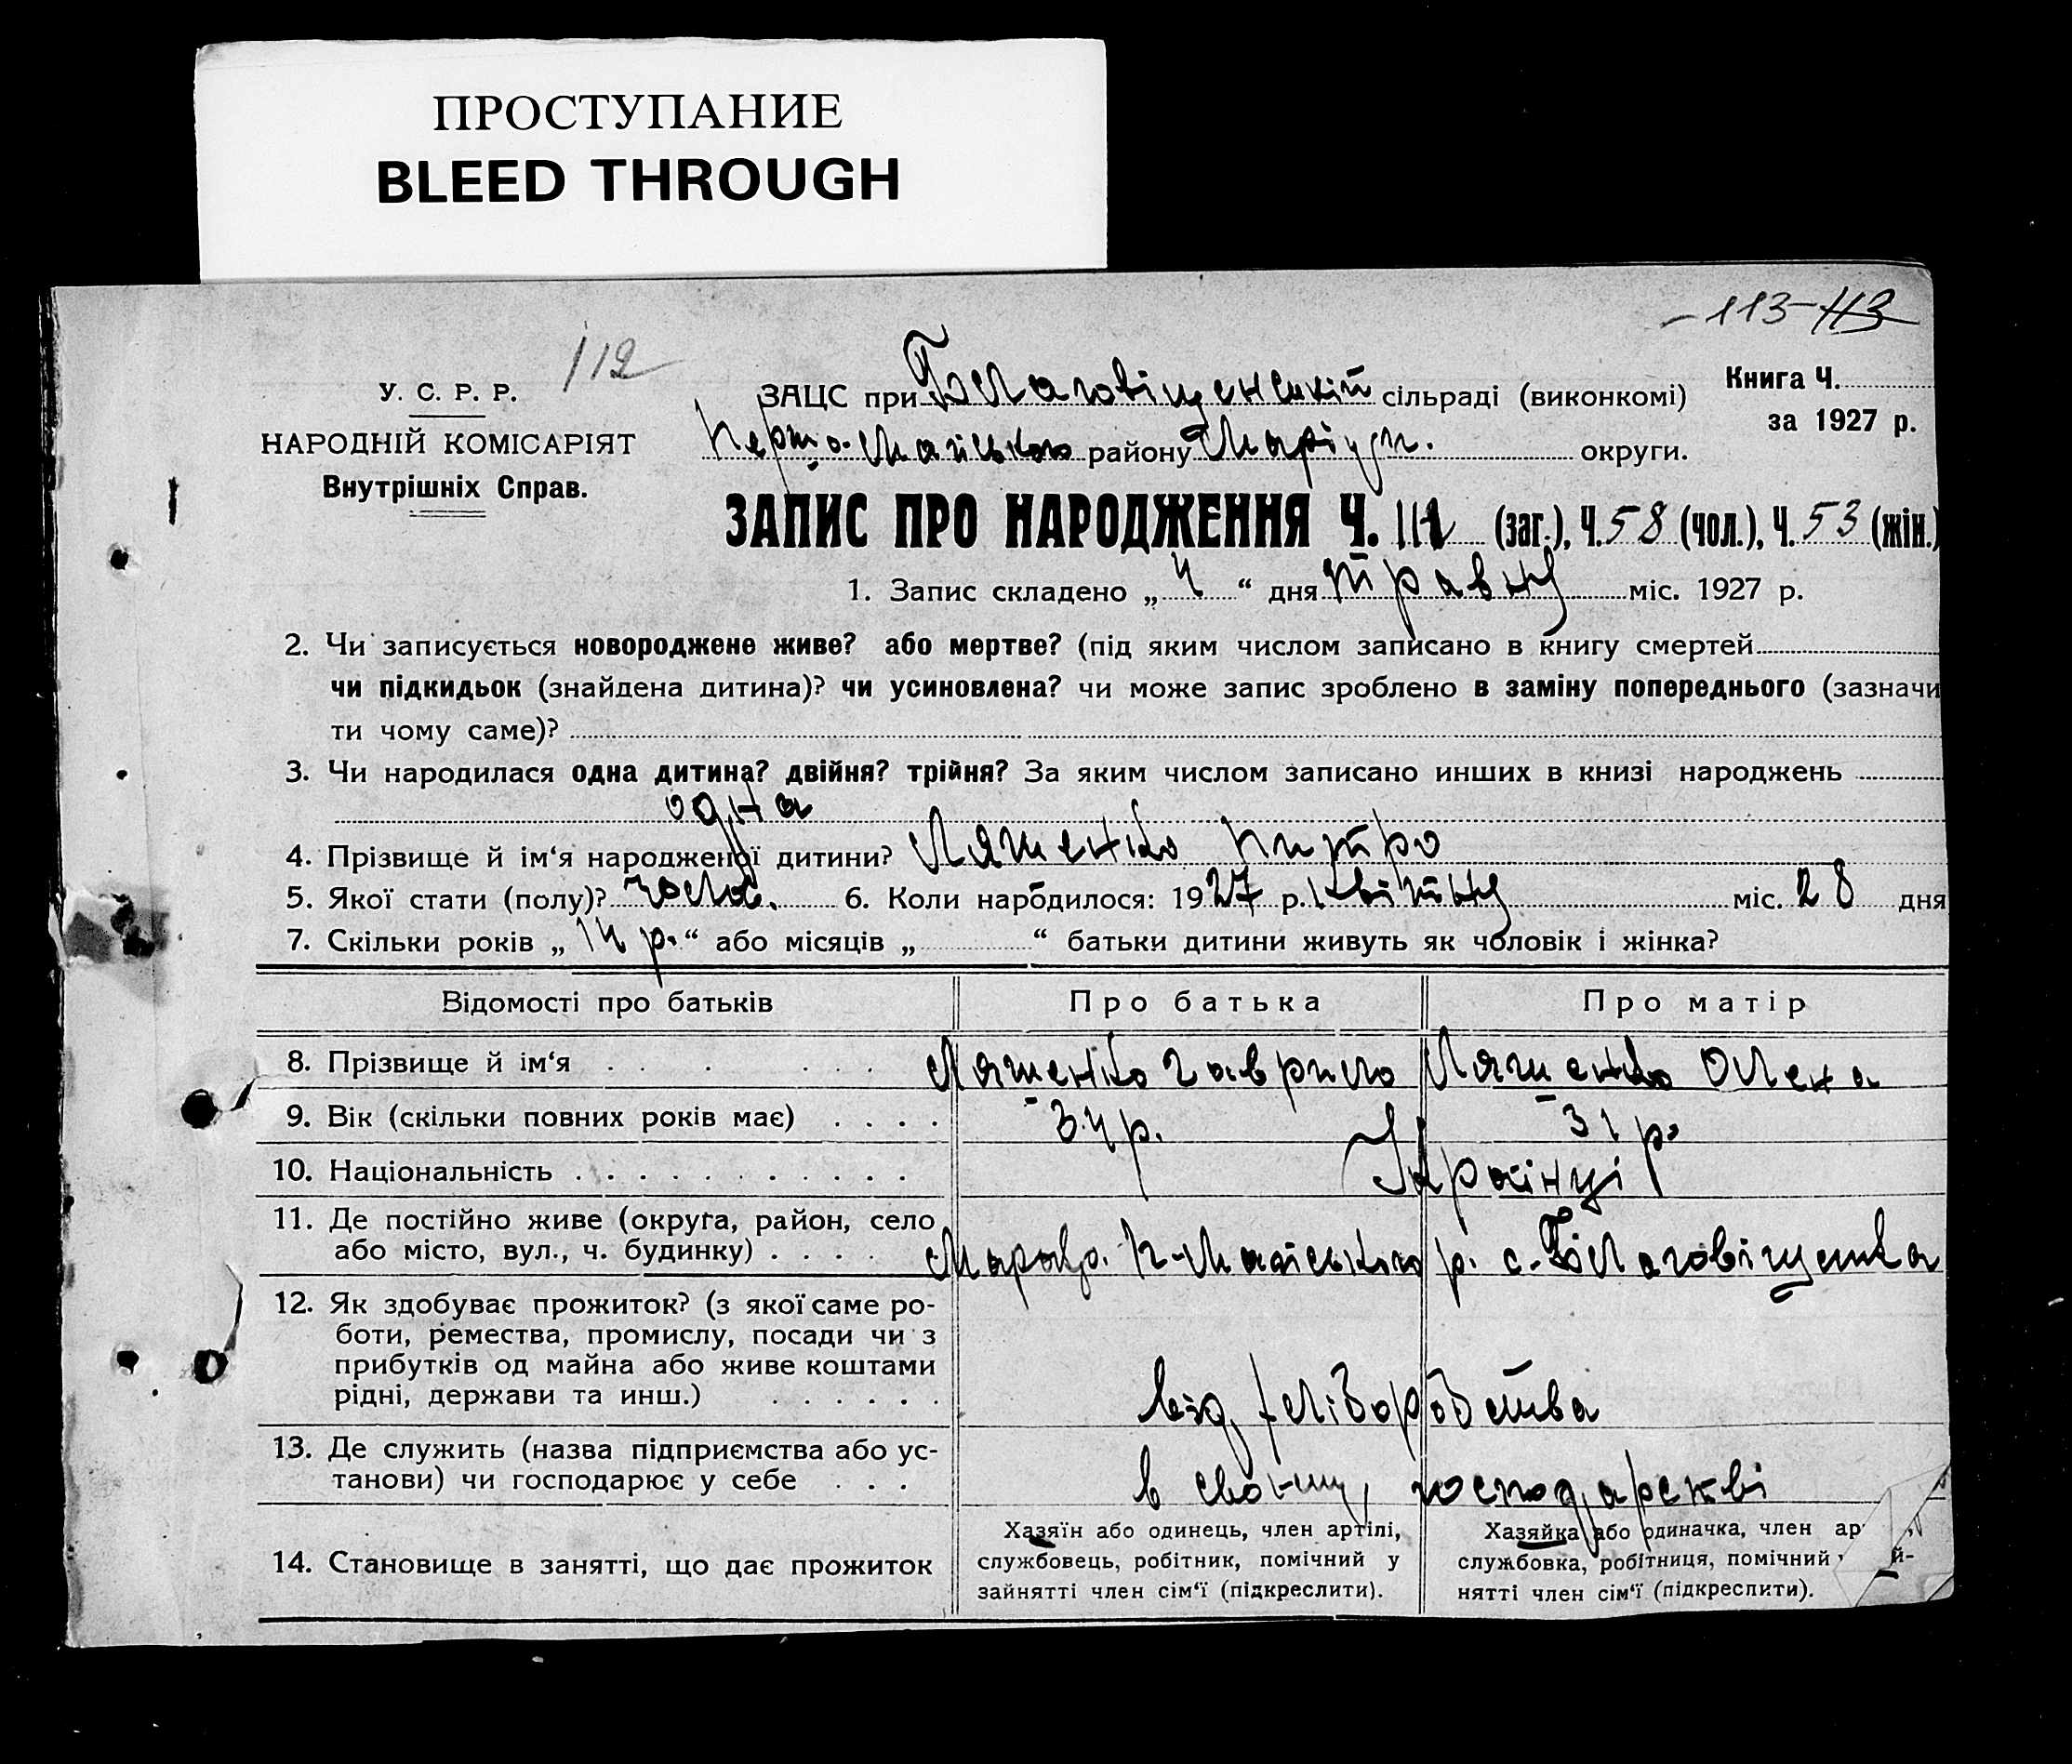 ПРОСТУПАНИЕ
BLEED THROUGH
-113-113
112
У. С. Р. Р.
НАРОДНІЙ КОМІСАРІЯТ
Внутрішніх Справ.
ЗАЦС при Благовіщенській сільраді (виконкомі)
Перто-Майського району Маріуп. округи.
Книга Ч.
за 1927 р.
ЗАПИС ПРО НАРОДЖЕННЯ Ч. 111 (заг.), Ч. 58 (чол.), Ч. 53 (жін.)
1. Запис складено „ 4 “ дня травня міс. 1927 р.
2. Чи записується новороджене живе? або мертве? (під яким числом записано в книгу смертей
чи підкидьок (знайдена дитина)? чи усиновлена? чи може запис зроблено в заміну попереднього (зазначи
ти чому саме)?
3. Чи народилася одна дитина? двійня? трійня? За яким числом записано инших в книзі народжень
одна
4. Прізвище й ім‘я народженої дитини? Ляшенко Питро
5. Якої стати (полу)? чолов. 6. Коли народилося: 1927 р. квітня міс. 28 дня
7. Скільки років „ 14 р. “ або місяців „ “ батьки дитини живуть як чоловік і жінка?
Відомості про батьків Про батька Про матір
8. Прізвище й ім‘я . . . . . . Ляшенко Гаврило Ляшенко Олена
9. Вік (скільки повних років має) . . . . 34 р. 31 р.
10. Національність . . . . . . . . . . . Українці
11. Де постійно живе (округа, район, село
або місто, вул., ч. будинку) . . . . П-Майського р. с. Благовіщенка
12. Як здобуває прожиток? (з якої саме ро-
боти, ремества, промислу, посади чи з
прибутків од майна або живе коштами
рідні, держави та инш.) . . . . . . від хліборобства
13. Де служить (назва підприємства або ус-
танови) чи господарює у себе . . . в свойму господарстві
14. Становище в занятті, що дає прожиток
Хазяїн або одинець, член артілі,
службовець, робітник, помічний у
зайнятті член сім‘ї (підкреслити).
Хазяйка або одиначка, член ар
службовка, робітниця, помічний й-
нятті член сім‘ї (підкреслити).